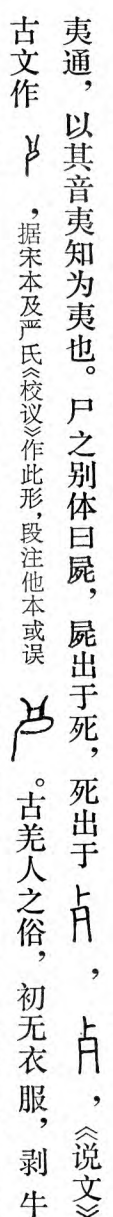 夷通，以其音夷知为夷也。尸之别体曰屍，屍出于死，死出于歺，歺，《说文》
古文作，据宋本及严氏《校议》作此形，段注他本或误。古羌人之俗，初无衣服，剥牛